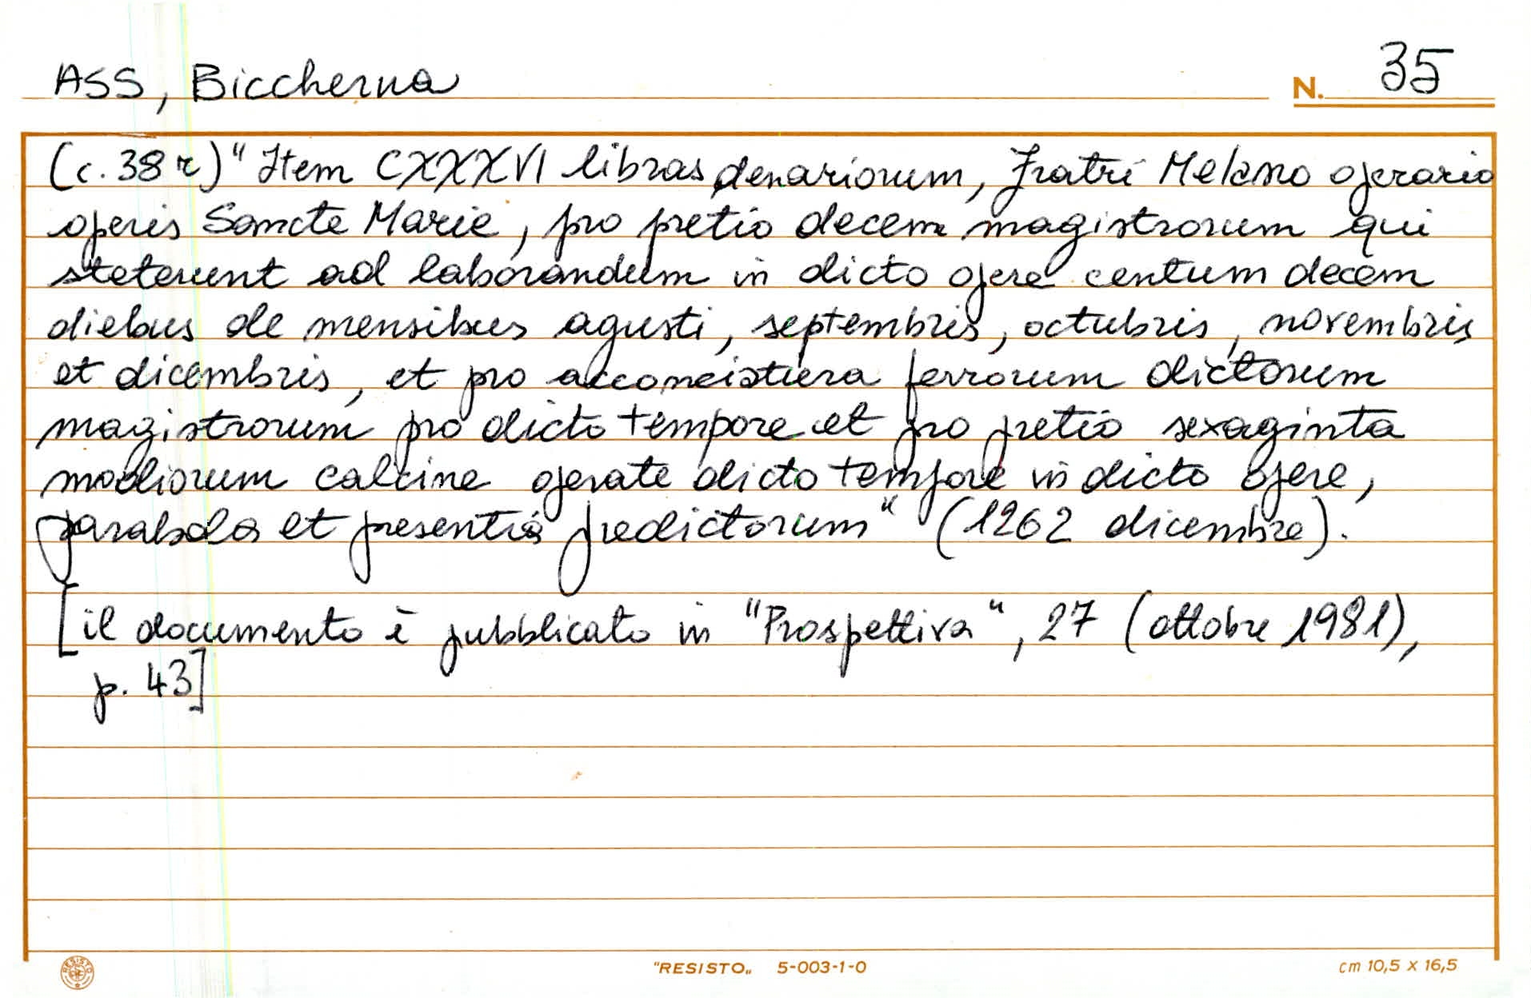 ASS, Biccherna
N. 35
(c. 38 r) "Item CXXXVI libras denariorum, fratri Melano operario
operis Sancte Marie, pro pretio decem magistrorum qui
steterunt ad laborandum in dicto opere centum decem
diebus de mensibus agusti, septembris, octubris, novembris
et dicembris, et pro acconciatura ferrorum dictorum
magistrorum pro dicto tempore et pro pretio sexaginta
modiorum calcine operate dicto tempore in dicto opere,
parabola et presentia predictorum" (1262 dicembre).
[il documento è pubblicato in "Prospettiva", 27 (ottobre 1981),
p. 43]
RESISTO
"RESISTO" 5-003-1-0
cm 10,5 x 16,5